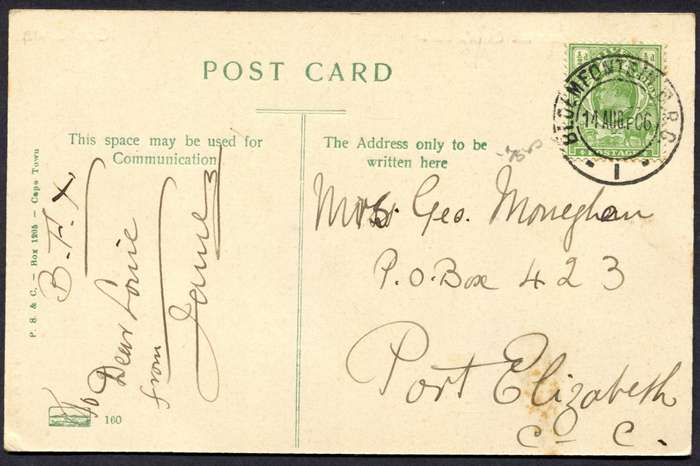 POST CARD
This space may be used for
Communication
The Address only to be
written here
BLOEMFONTEIN O.R.C.
14 AUG 06
1
POSTAGE
Mrs Geo. Moneghan
P.O. Box 423
Port Elizabeth
C. C.
B.F.X
To Dear Louie
from James
P. S. & C. — Box 1205 — Cape Town
160